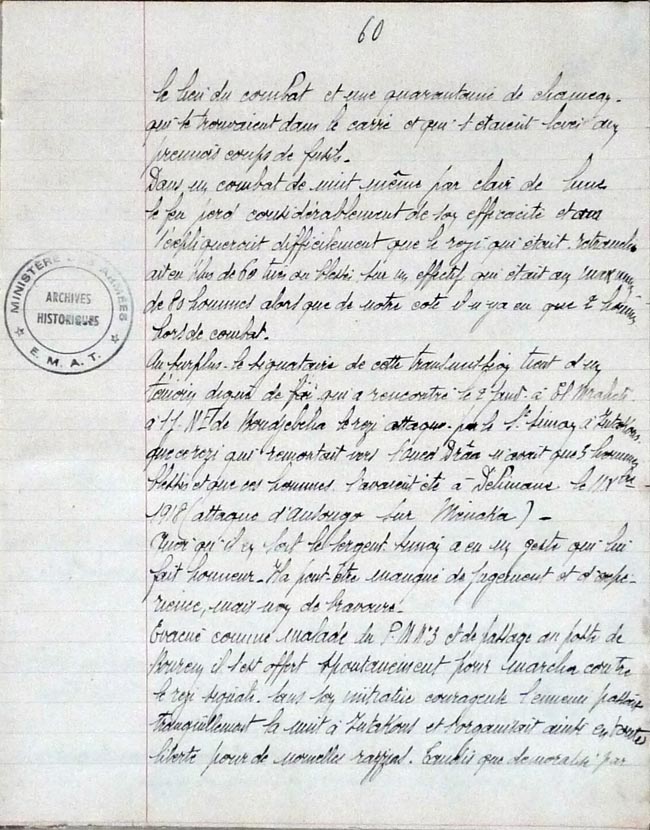 60
le lieu du combat et une quarantaine de chameaux
qui se trouvaient dans le carré et qui s'étaient levés aux
premiers coups de fusils.
Dans un combat de nuit même par clair de lune
le feu perd considérablement de son efficacité et on
s'expliquerait difficilement que le rezi qui était retranché
ait eu plus de 60 tués ou blessés sur un effectif qui était au maximum
de 80 hommes alors que de notre coté il n'y a eu que 2 hommes
hors de combat.
MINISTÈRE DES ARMÉES
ARCHIVES
HISTORIQUES
E. M. A. T.
Au surplus le signataire de cette transmission tient d'un
témoin digne de foi qui a rencontré le 2 à El
à de le rezi attaqué par le St Simon à
que ce rezi qui remontait vers l'Oued Drâa n'avait que 5 hommes
blessés et que ces hommes l'avaient été à le
1918 (attaque d'Ansongo sur Menaka) -
Quoi qu'il en soit le Sergent Simon a eu un geste qui lui
fait honneur - Il a peut-être manqué de jugement et d'expé-
rience, mais non de bravoure -
Evacué comme malade du P.M. N°3 et de passage au poste de
Bourem il s'est offert spontanément pour marcher contre
le rezi signalé. Sans son initiative courageuse l'ennemi passait
tranquillement la nuit à et s'organisait ainsi en toute
liberté pour de nouvelles razzias. Tandis que démoralisé par